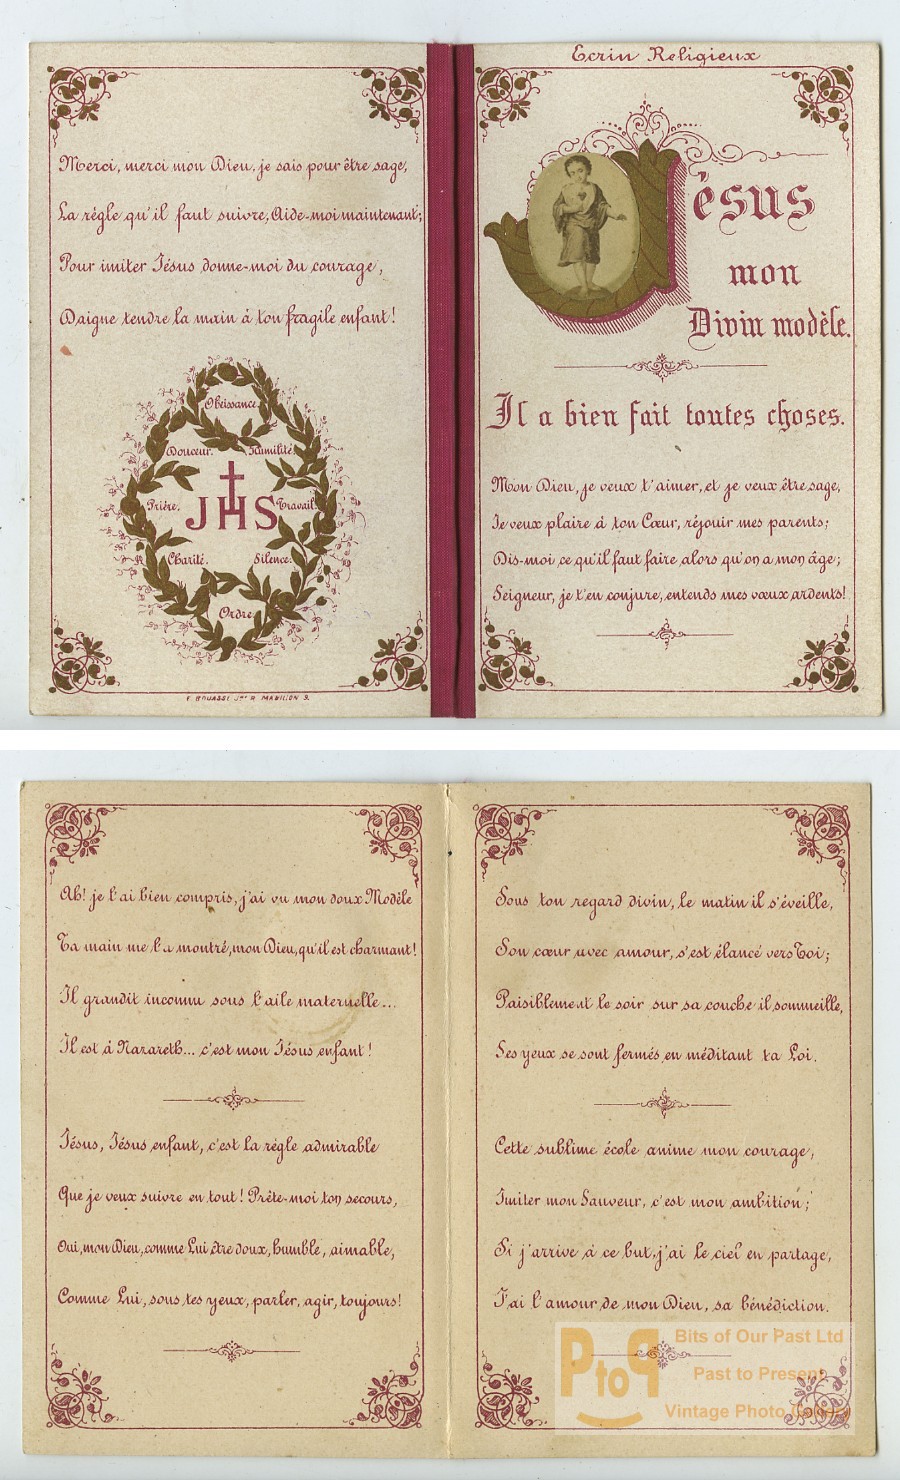 Merci, merci mon Dieu, je sais pour être sage,
La règle qu'il faut suivre, Aide-moi maintenant;
Pour imiter Jésus donne-moi du courage,
Daigne tendre la main à ton fragile enfant!
Obéissance.
Douceur. Humilité.
Prière. JHS Travail.
Charité. Silence.
Ordre.
F. BOUASSE Jne R. MABILLON 9.
Ecrin Religieux
Jésus
mon
Divin modèle.
Il a bien fait toutes choses.
Mon Dieu, je veux t'aimer, et je veux être sage,
Je veux plaire à ton Cœur, réjouir mes parents;
Dis-moi ce qu'il faut faire alors qu'on a mon âge;
Seigneur, je t'en conjure, entends mes vœux ardents!
Ah! je l'ai bien compris, j'ai vu mon doux Modèle
Ta main me l'a montré, mon Dieu, qu'il est charmant!
Il grandit inconnu sous l'aile maternelle...
Il est à Nazareth... c'est mon Jésus enfant!
Jésus, Jésus enfant, c'est la règle admirable
Que je veux suivre en tout! Prête-moi ton secours,
Oui, mon Dieu, comme Lui être doux, humble, aimable,
Comme Lui, sous tes yeux, parler, agir, toujours!
Sous ton regard divin, le matin il s'éveille,
Son cœur avec amour, s'est élancé vers Toi;
Paisiblement le soir sur sa couche il sommeille,
Ses yeux se sont fermés en méditant ta Loi.
Cette sublime école anime mon courage,
Imiter mon Sauveur, c'est mon ambition;
Si j'arrive à ce but, j'ai le ciel en partage,
J'ai l'amour de mon Dieu, sa bénédiction.
PtoP
Bits of Our Past Ltd
Past to Present
Vintage Photo Gallery